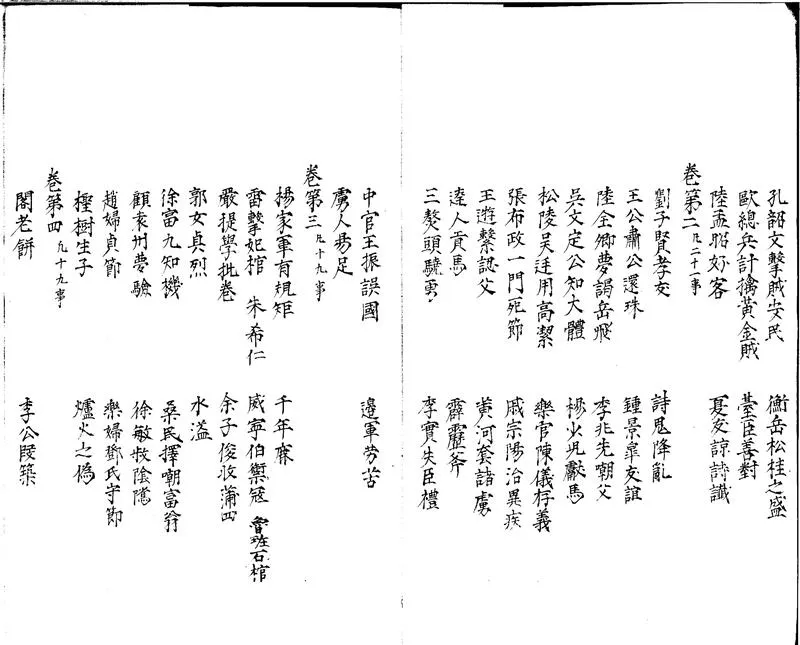 孔韶文擊賊安民　衡岳松桂之盛
歐總兵計擒黃金賊　臺臣善對
陸孟昭好客　夏友諒詩讖
卷第二 凡二十一事
劉子賢孝友　詩鬼降亂
王公肅公還珠　鍾景皐友誼
陸全卿夢謁岳飛　李兆先嘲父
吳文定公知大體　楊少兇獻馬
松陵吳廷用高潔　樂官陳儀存義
張布政一門死節　戚宗陽治異疾
王遊繫認父　黃河套諸虜
逵人貢馬　霹靂斧
三獒頭驍勇　李實失臣禮
中官王振誤國　邊軍勞苦
虜人易足
卷第三 凡十九事
楊家軍有規矩　千年麻
雷擊妃棺　朱希仁　威寧伯禦寇　魯班石棺
嚴提學批卷　余子俊收蒲四
郭女貞烈　水溢
徐富九知機　桑民擇嘲富翁
顧袁州夢驗　徐敏救陰隲
趙婦貞節　樂婦鄧氏守節
樫樹生子　爐火之偽
卷第四 凡十九事
閣老餅　李公陂築